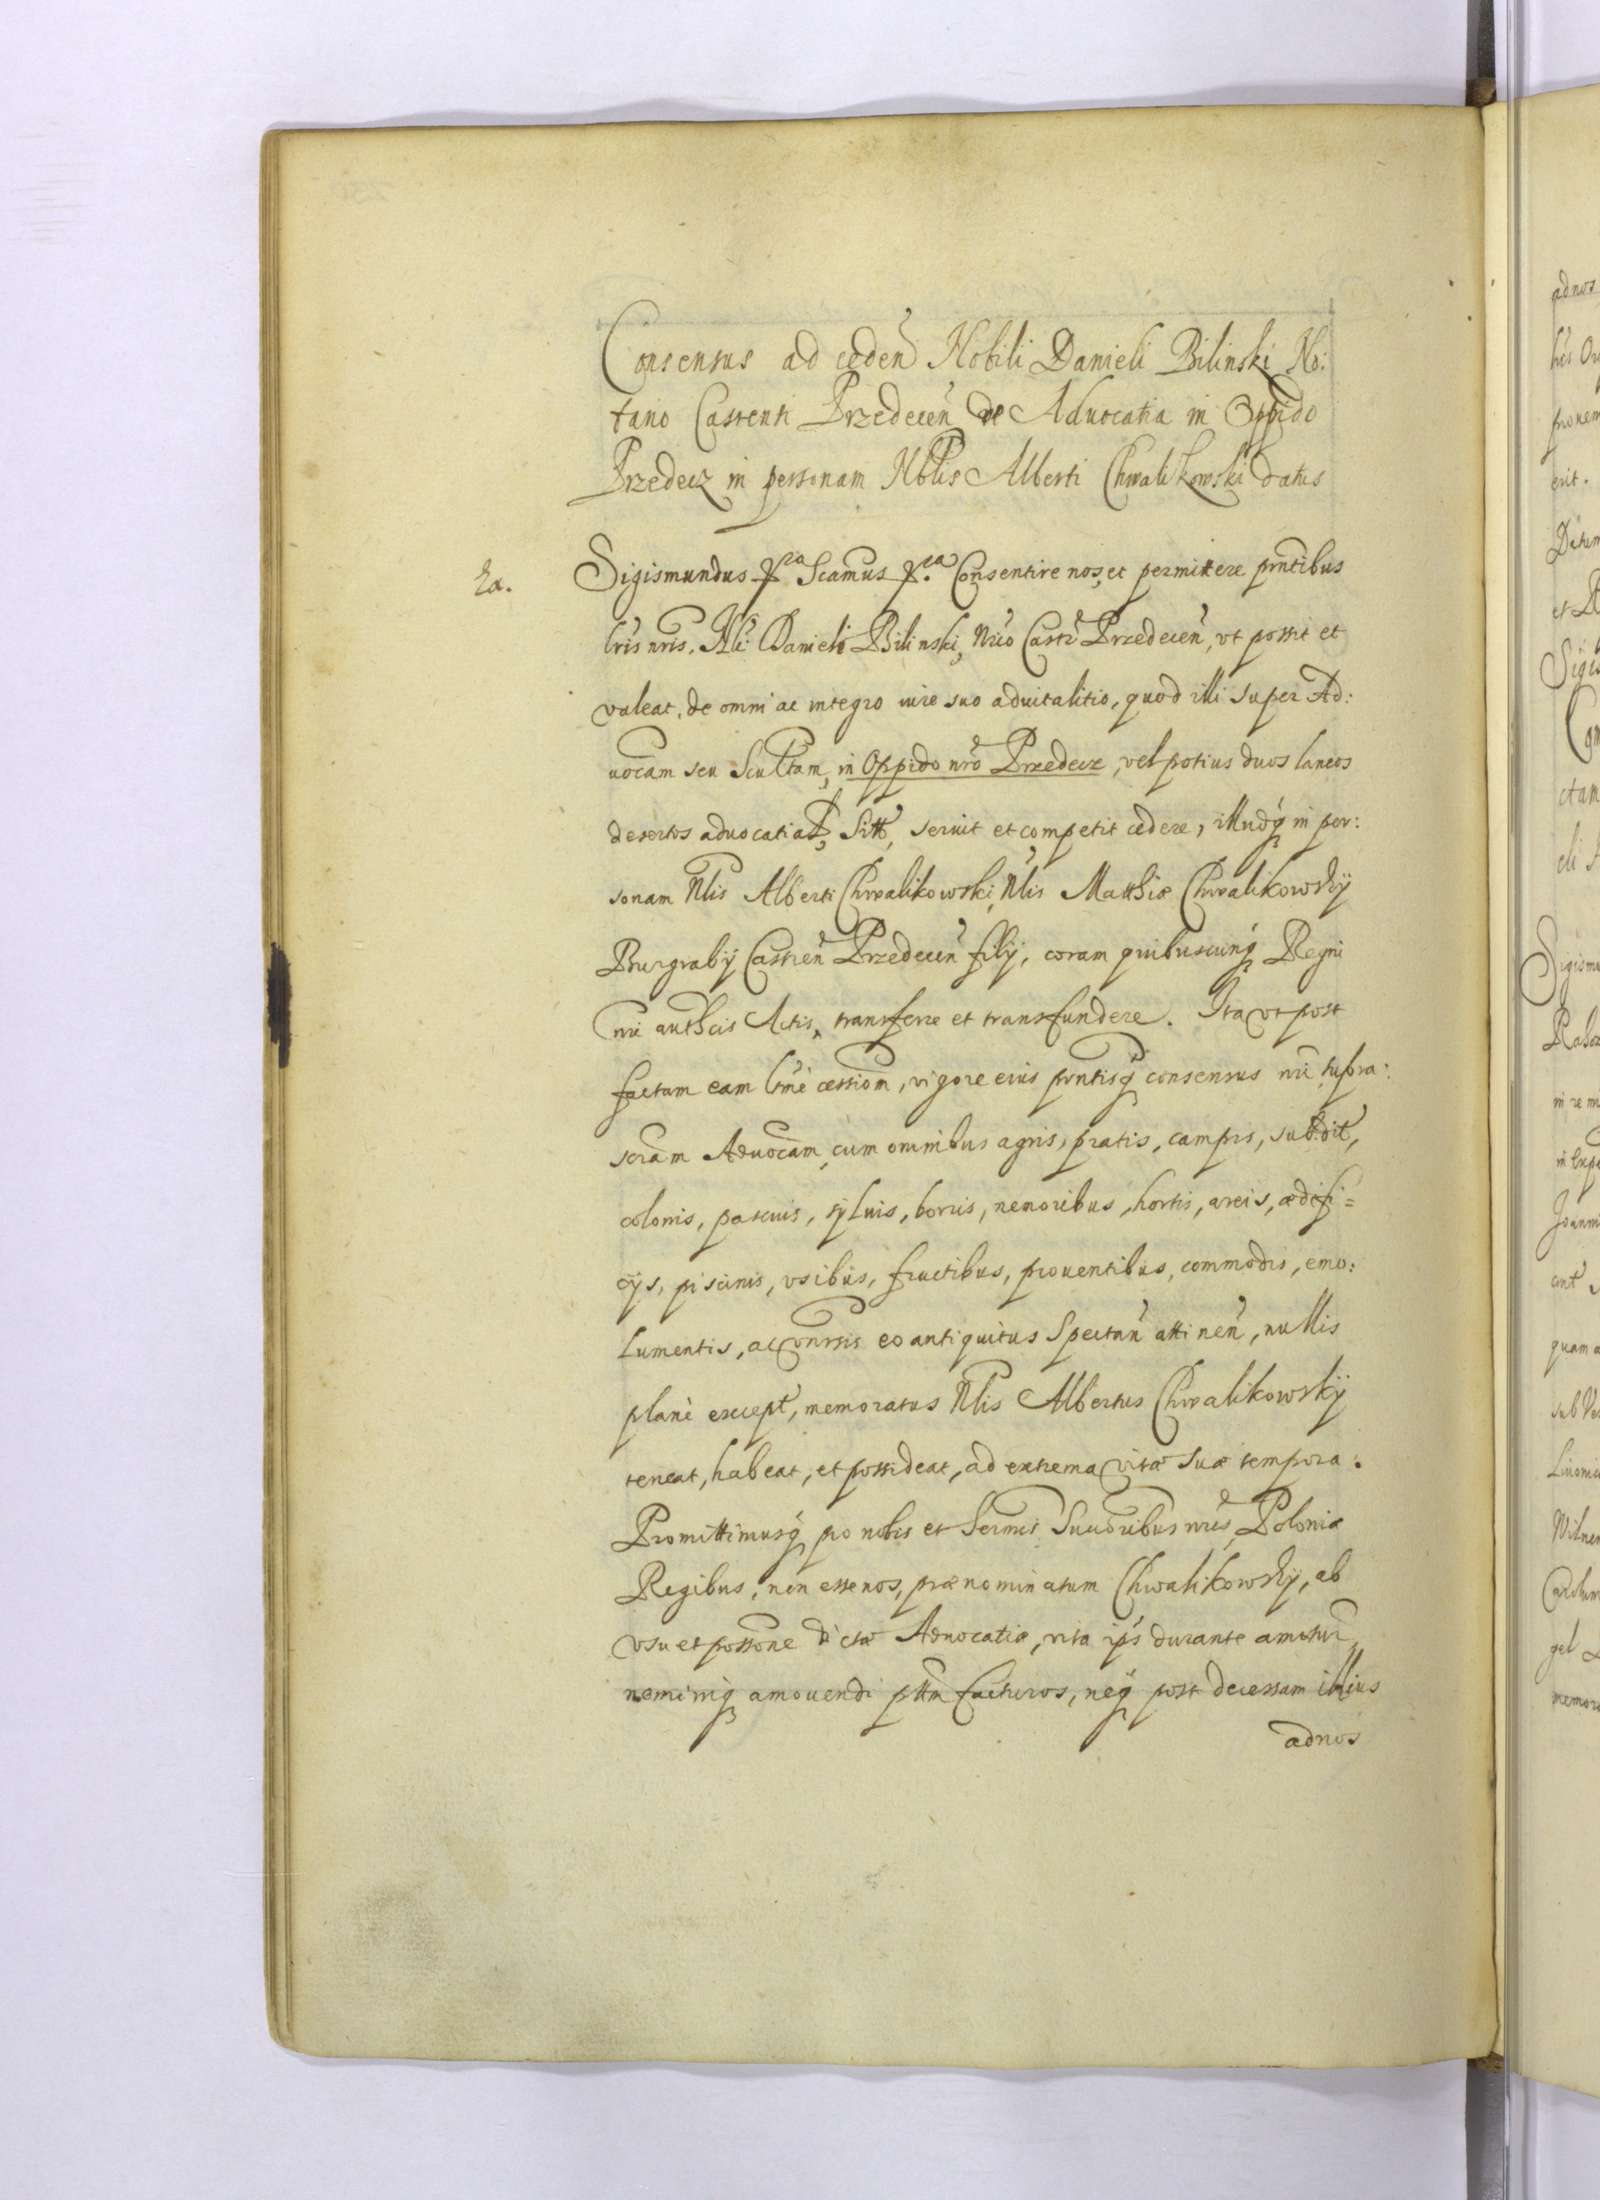 Consensus ad ceden̄ Nobili Danieli Bilinski No:
tario Castrensi Przedecen̄ de Aduocatia in Oppido
Przedecz in personam Nblis Alberti Chwalikowski datus
Ea.
Sigismundus &ca Scamus &ca. Consentire nos, et permittere prntibus
lris nris. Nli Danieli Bilinski, Nrio Castrĩ Przedecen̄, vt possit et
valeat, de omni ac integro iure suo aduitalitio, quod illi super Ad:
uocam seu Scultam, in Oppido nro Przedecz, vel potius duos laneos
desertos aduocatiales, sitt, seruit et competit cedere, illudq̨ in per:
sonam Nlis Alberti Chwalikowski, Nlis Matthiæ Chwalikowsky
Burgrabij Castren̄ Przedecen̄ filij, coram quibuscunq̨ Regni
nri authcis Actis, transferre et transfundere. Ita vt post
factam eam ltmè cessiom, vigore eius prntisq̨ consensus nri, supra:
scram Aduocam, cum omnibus agris, pratis, campis, subdit,
colonis, pascuis, syluis, borris, nemoribus, hortis, areis, ædifi=
cijs, piscinis, vsibus, fructibus, prouentibus, commodis, emo:
lumentis, ac onrsis eo antiquitus spectan̄ attinen̄, nullis
planè except, memoratus Nlis Albertus Chwalikowsky
teneat, habeat, et possideat, ad extrema vitæ suæ tempora.
Promittimusq̨ pro nobis et Sermis Succribus nris, Poloniæ
Regibus, non esse nos, prænominatum Chwalikowsky, ab
vsu et possone dictæ Aduocatiæ, vita ips durante amoturos
neminiq̨ amouendi pttm facturos, neq̨ post decessum illius
adnos
adnos
erit.
quam a
memor